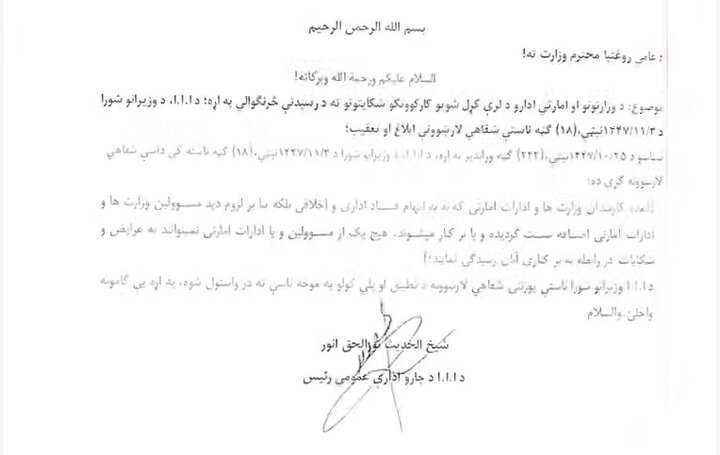 بسم الله الرحمن الرحیم
: عامې روغتیا محترم وزارت ته!
السلام علیکم ورحمة الله وبرکاته!
موضوع: د وزارتونو او امارتي ادارو د لرې کړل شویو کارکوونکو شکایتونو ته د رسیدنې څرنګوالي په اړه؛ د ا.ا.ا، د وزیرانو شورا
د ۱۴۴۷/۱۱/۳نېټې، (۱۸) ګڼه ناستې شفاهي لارښوونې ابلاغ او تعقیب؛
د ۱۴۴۷/۱۰/۲۵نېټې، (۲۲۲) ګڼه وړاندیز په اړه، د ا.ا.ا، د وزیرانو شورا د ۱۴۴۷/۱۱/۳نېټې، (۱۸) ګڼه ناسته کې داسې شفاهي
لارښوونه کړې ده:
کارمندان وزارت ها و ادارات امارتی که نه به اتهام فساد اداری و اخلاقی بلکه بنا بر لزوم دید مسوولین وزارت ها و
ادارات امارتی اضافه بست گردیده و یا بر کنار میشوند، هیچ یک از مسوولین و یا ادارات امارتی نمیتوانند به عرایض و
شکایات در رابطه به بر کناری آنان رسیدگی نمایند؛
د ا.ا.ا وزیرانو شورا ناستې پورتنۍ شفاهي لارښوونه د تطبیق او پلي کولو په موخه تاسې ته در واستول شوه، په اړه یې ګامونه
واخلئ.والسلام
شیخ الحدیث نورالحق انور
د ا.ا.ا د چارو ادارې عمومي رئیس